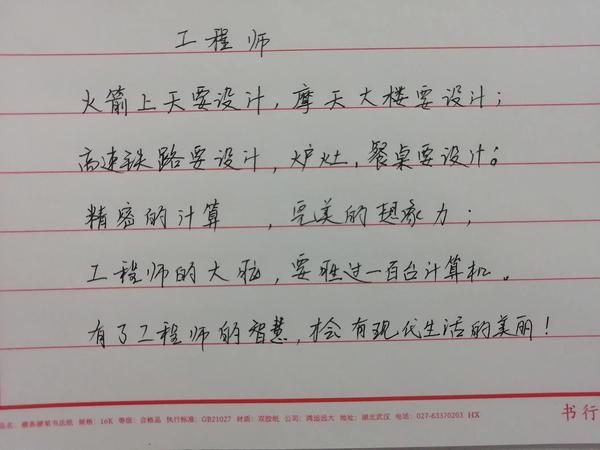 工程师
火箭上天要设计，摩天大楼要设计；
高速铁路要设计，炉灶，餐桌要设计。
精密的计算　，完美的想象力；
工程师的大脑，要胜过一百台计算机。
有了工程师的智慧，才会有现代生活的美丽！
书行
品名：横条硬笔书法纸 规格：16K 等级：合格品 执行标准：GB21027 材质：双胶纸 公司：鸿运远大 地址：湖北武汉 电话：027-63370203 HX